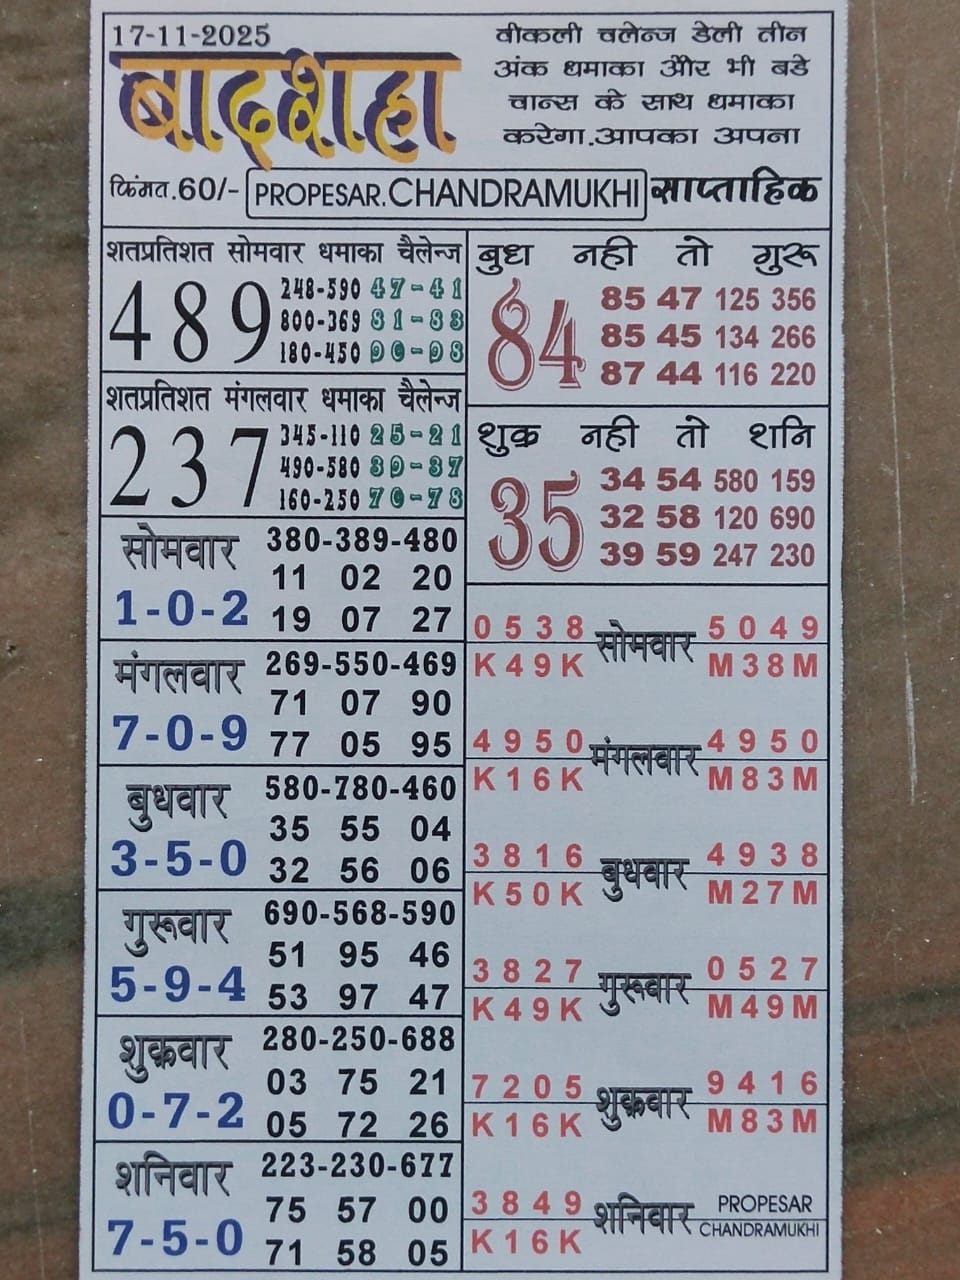 17-11-2025
बादशहा
वीकली चलेन्ज डेली तीन
अंक धमाका और भी बडे
चान्स के साथ धमाका
करेगा.आपका अपना
किंमत.60/- PROPESAR.CHANDRAMUKHI साप्ताहिक
शतप्रतिशत सोमवार धमाका चैलेन्ज
489
248-590 47-41
800-369 81-83
180-450 90-98
शतप्रतिशत मंगलवार धमाका चैलेन्ज
237
345-110 25-21
490-580 30-37
160-250 70-78
सोमवार
1-0-2
380-389-480
11 02 20
19 07 27
मंगलवार
7-0-9
269-550-469
71 07 90
77 05 95
बुधवार
3-5-0
580-780-460
35 55 04
32 56 06
गुरूवार
5-9-4
690-568-590
51 95 46
53 97 47
शुक्रवार
0-7-2
280-250-688
03 75 21
05 72 26
शनिवार
7-5-0
223-230-677
75 57 00
71 58 05
बुध नही तो गुरू
84
85 47 125 356
85 45 134 266
87 44 116 220
शुक्र नही तो शनि
35
34 54 580 159
32 58 120 690
39 59 247 230
0 5 3 8 सोमवार 5 0 4 9
K 4 9 K M 3 8 M
4 9 5 0 मंगलवार 4 9 5 0
K 1 6 K M 8 3 M
3 8 1 6 बुधवार 4 9 3 8
K 5 0 K M 2 7 M
3 8 2 7 गुरूवार 0 5 2 7
K 4 9 K M 4 9 M
7 2 0 5 शुक्रवार 9 4 1 6
K 1 6 K M 8 3 M
3 8 4 9 शनिवार PROPESAR
K 1 6 K CHANDRAMUKHI